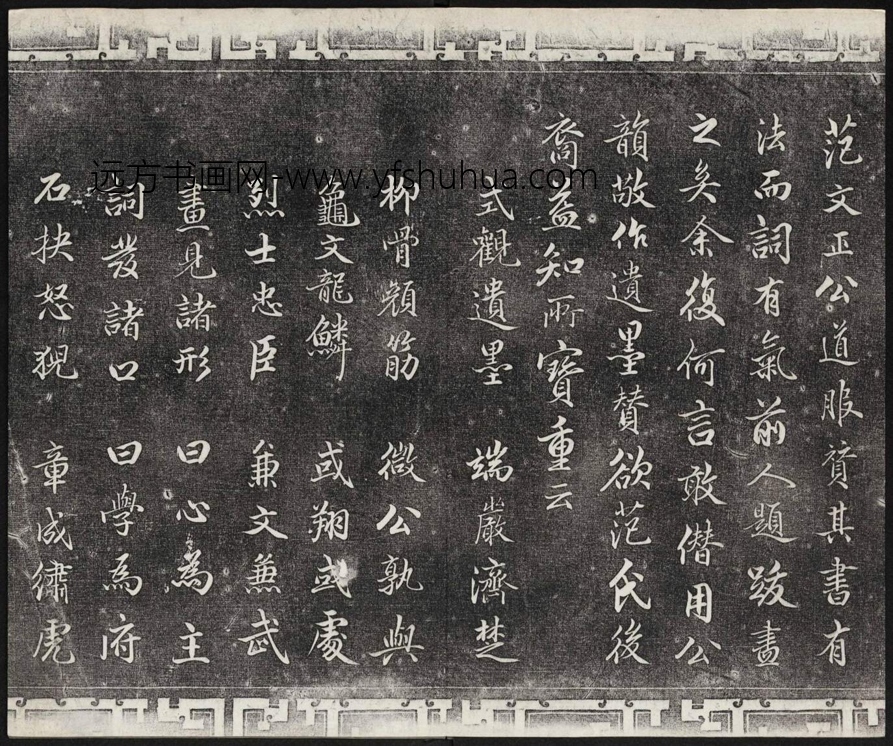 范文正公道服賛其書有
法而詞有氣前人題跋盡
之矣余復何言敢僭用公
韻敬作遺墨賛欲范氏後
裔益知所寶重云
式觀遺墨 端嚴濟楚
柳骨顔筋 微公孰與
龜文龍鱗 或翔或處
烈士忠臣 兼文兼武
畫見諸形 曰心為主
詞發諸口 曰學為府
石抉怒猊 章成繡虎
远方书画网-www.yfshuhua.com